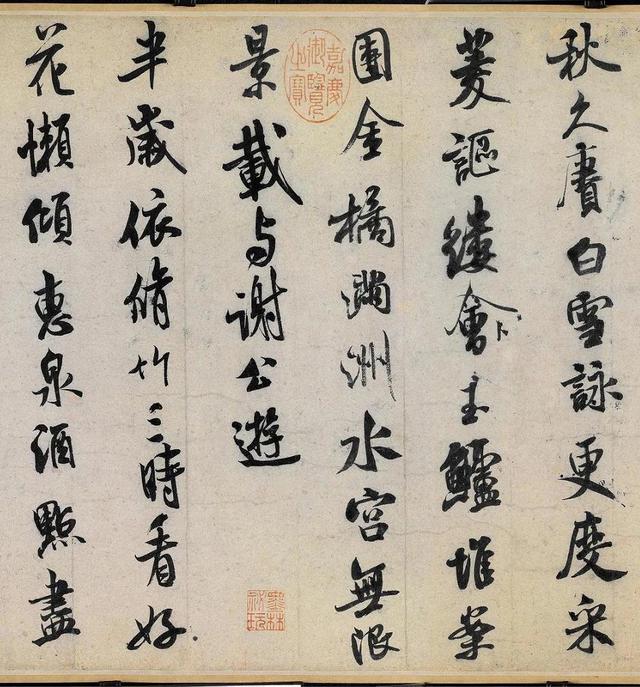 秋久賡白雪詠更度采
菱謳縷會玉鱸堆案
團金橘滿洲水宮無限
景載与謝公遊
半歲依脩竹三時看好
花懶傾惠泉酒點盡
嘉慶御覽之寶